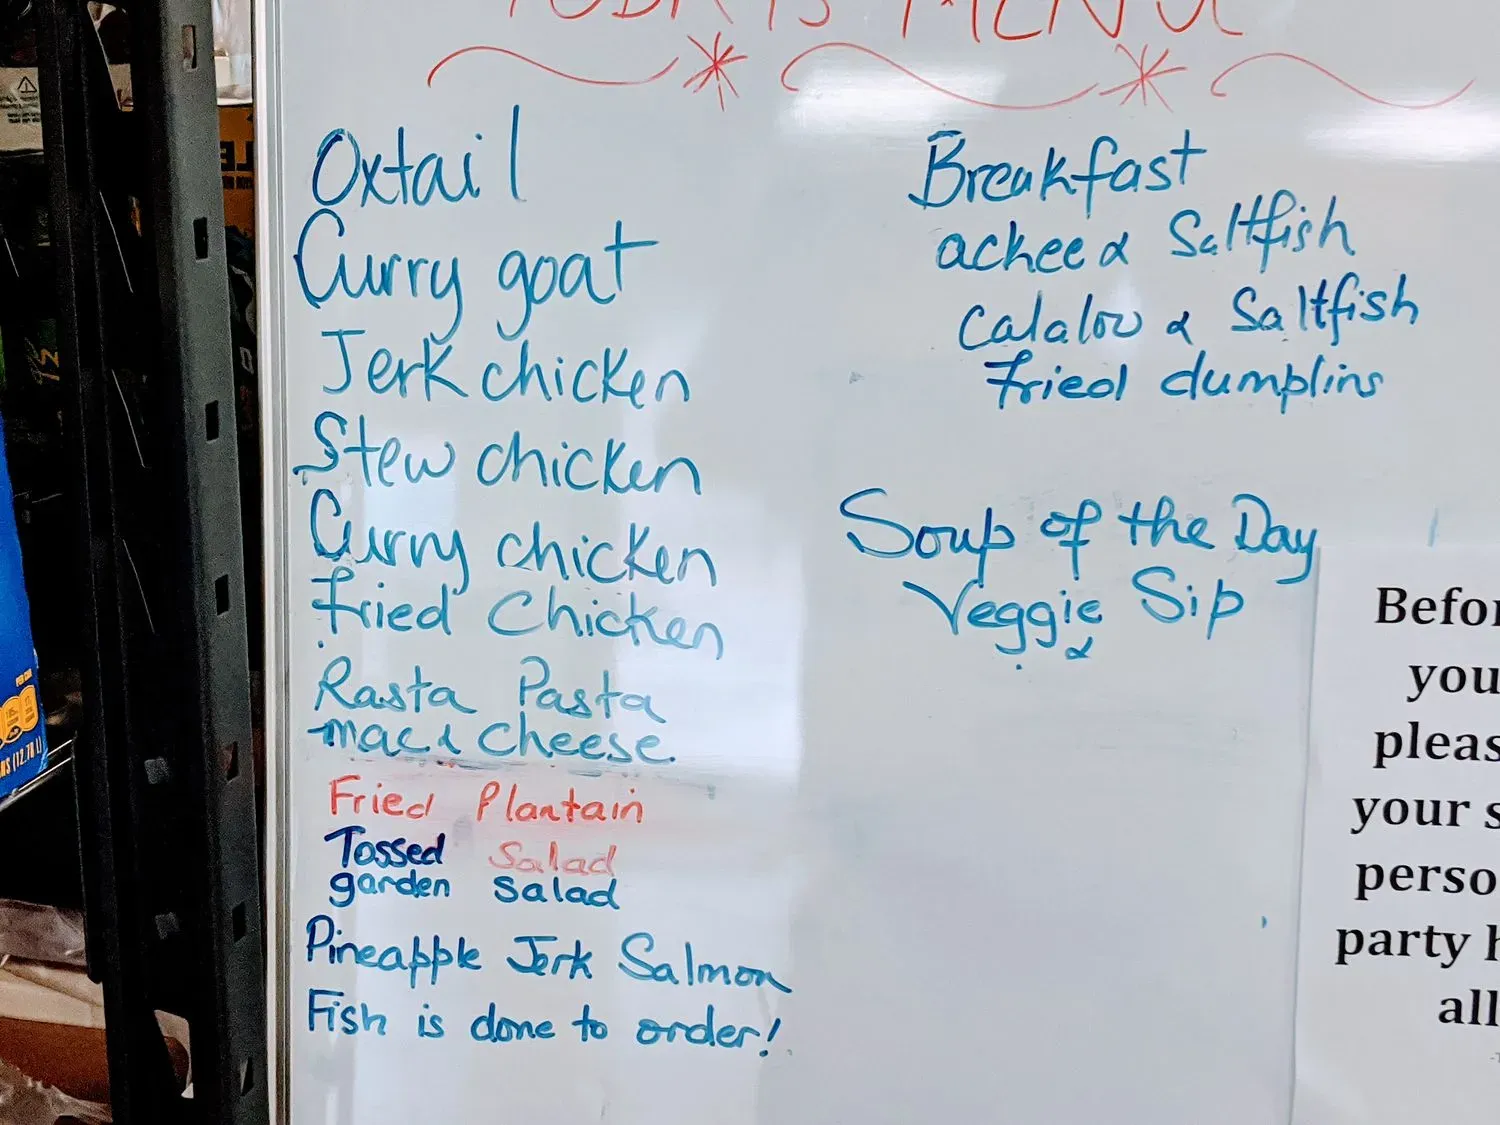 TODAY'S MENU
Oxtail
Curry goat
Jerk chicken
Stew chicken
Curry chicken
Fried Chicken
Rasta Pasta
mac & cheese
Fried Plantain
Tossed Salad
garden salad
Pineapple Jerk Salmon
Fish is done to order!
Breakfast
ackee & Saltfish
Calalou & Saltfish
Fried dumplins
Soup of the Day
Veggie Sip
&
Befor
you
pleas
your s
perso
party h
all